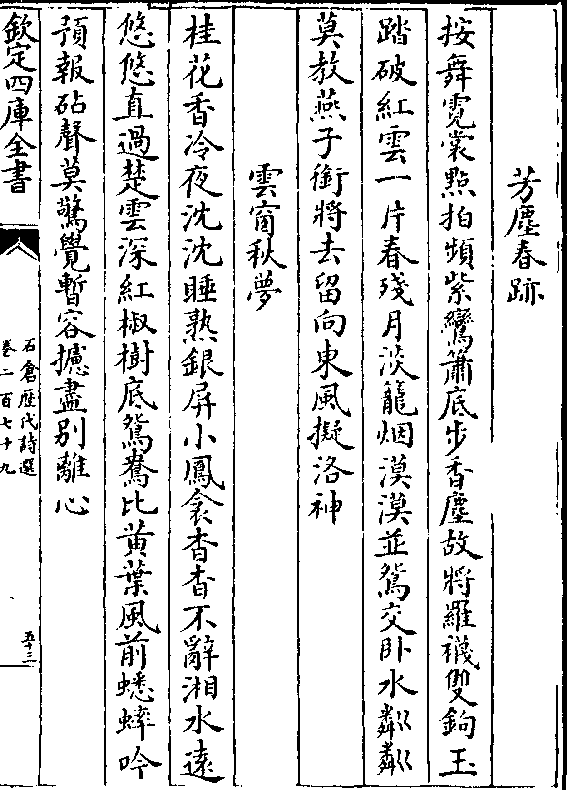 芳塵春跡
按舞霓裳㸃拍頻紫鸞簫底步香塵故將羅襪雙鉤玉
踏破紅雲一片春殘月淡籠烟漠漠並鴛交卧水粼粼
莫教燕子銜將去留向東風擬洛神
雲窗秋夢
桂花香冷夜沈沈睡熟銀屏小鳳衾杳杳不辭湘水遠
悠悠直過楚雲深紅椒樹底鴛鴦比黄葉風前蟋蟀吟
預報砧聲莫驚覺暫容攄盡別離心
欽定四庫全書
石倉歴代詩選
卷二百七十九
五十三